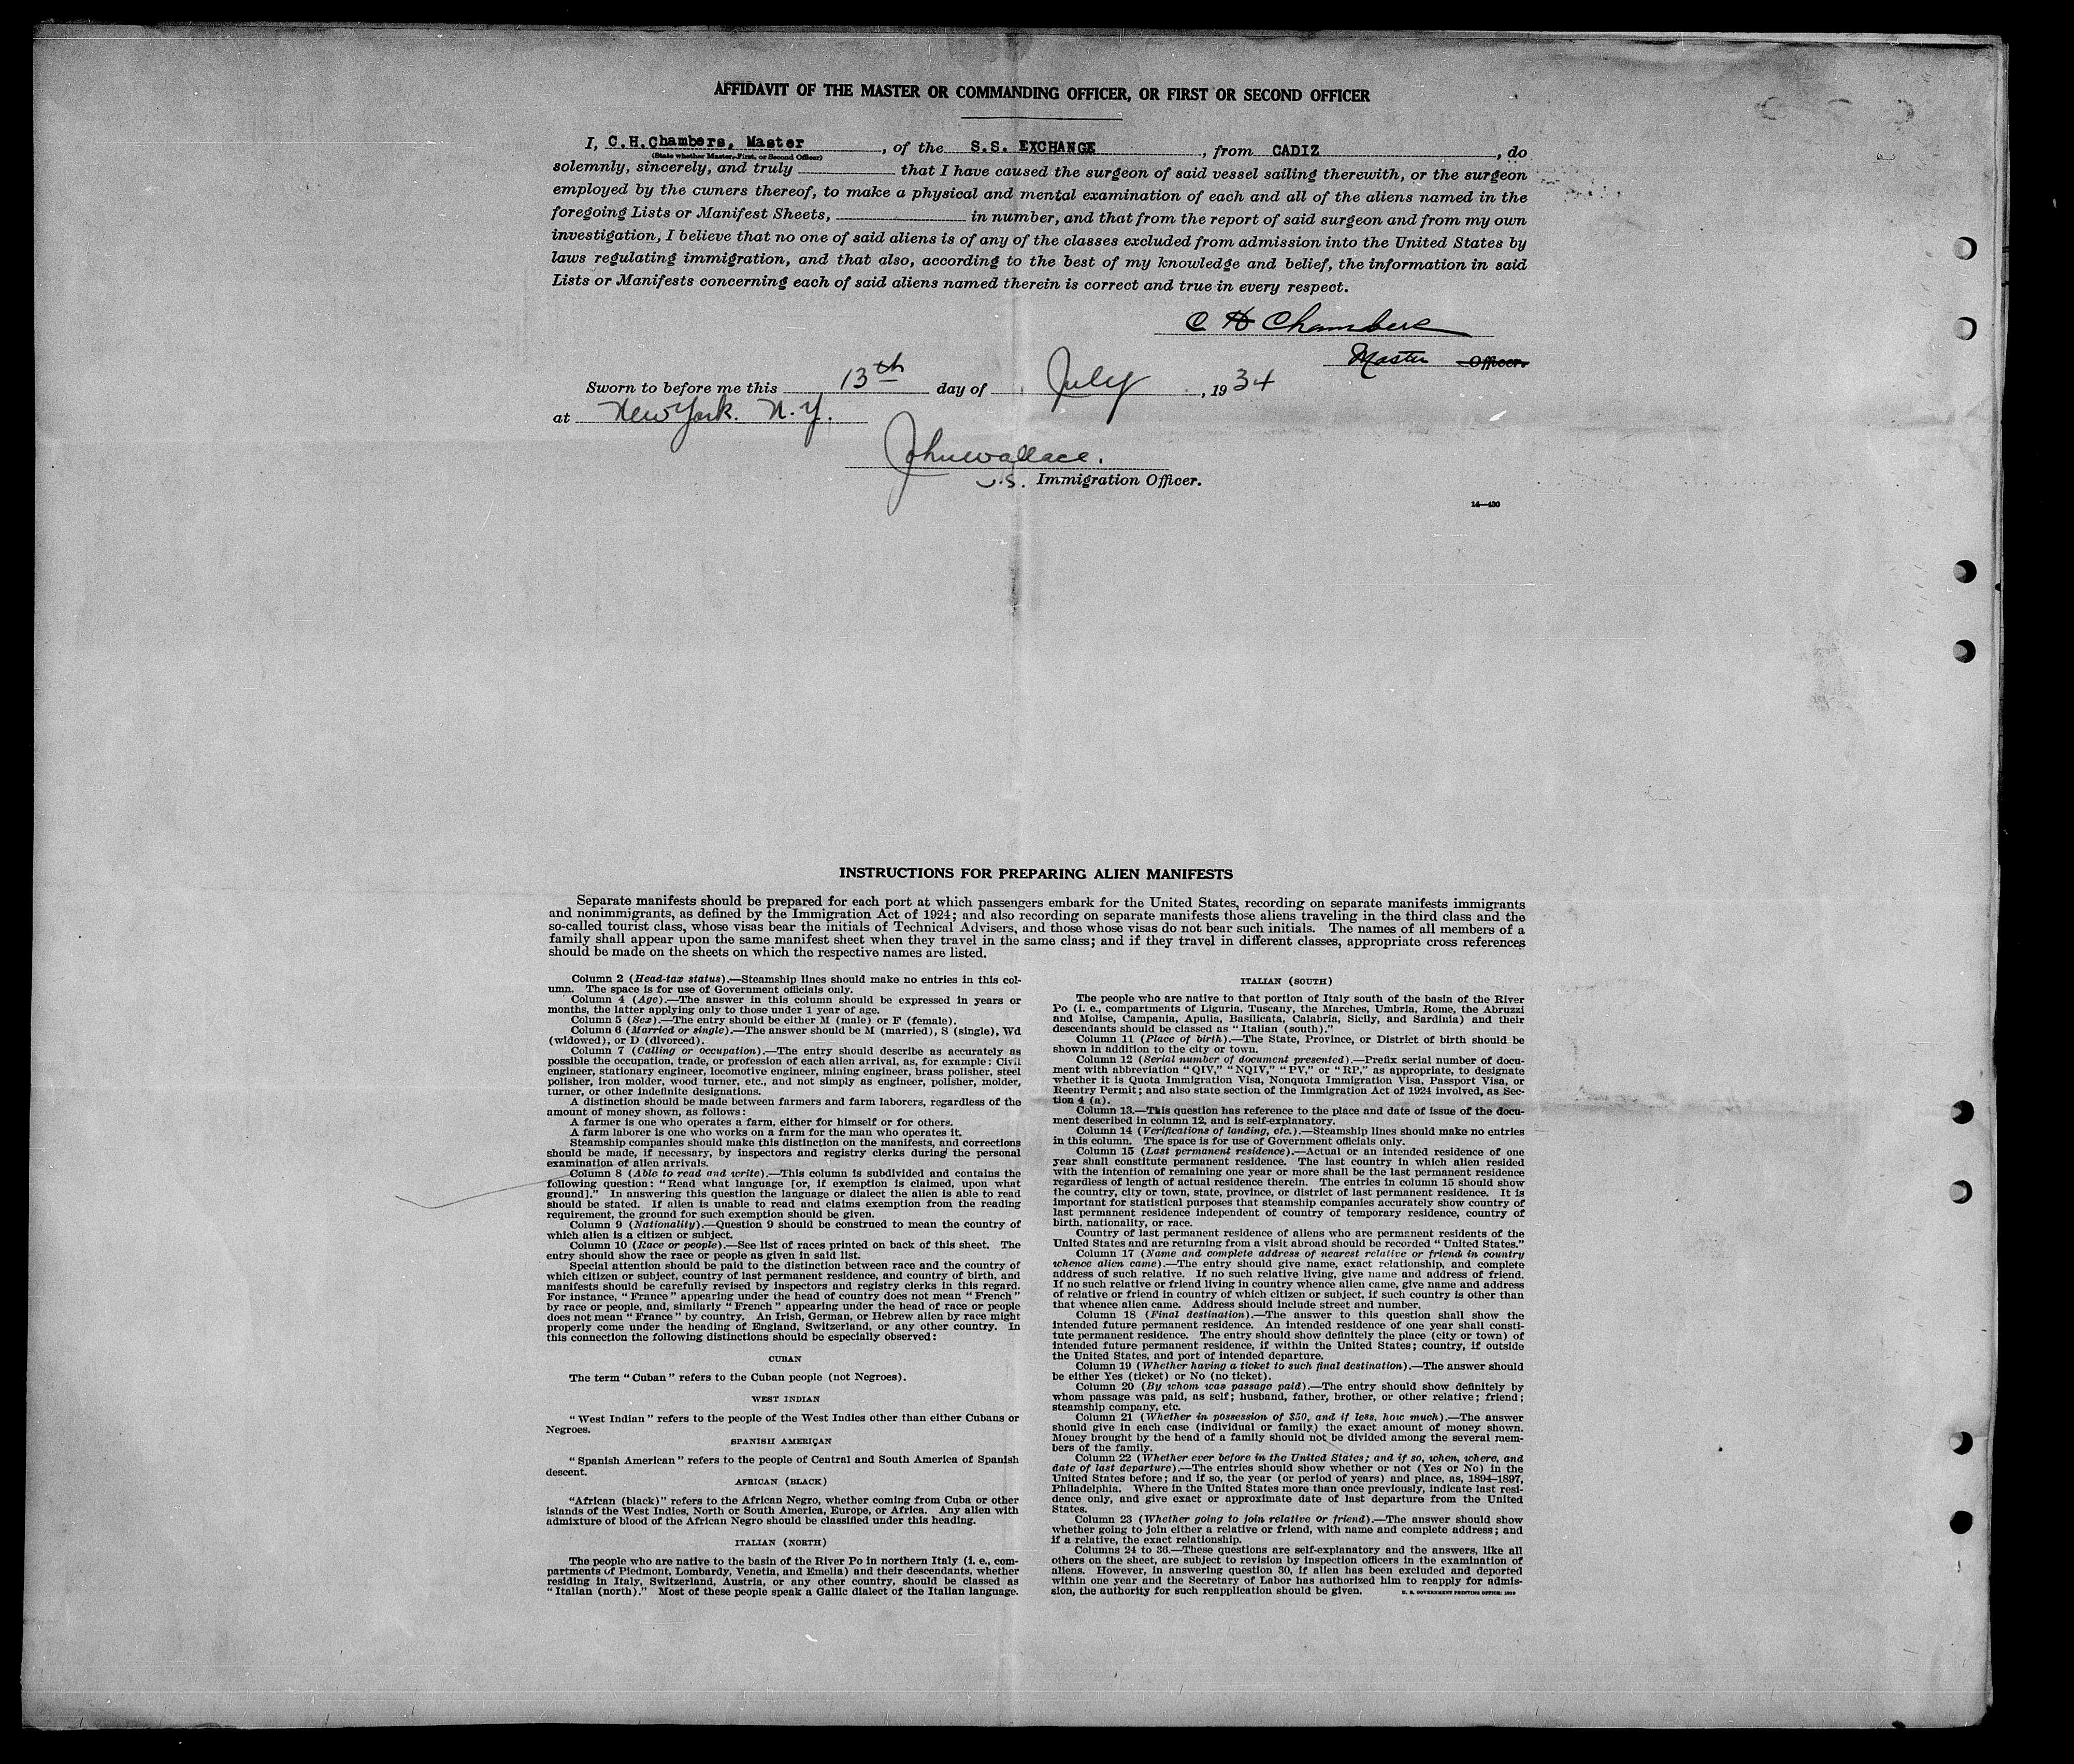 AFFIDAVIT OF THE MASTER OR COMMANDING OFFICER, OR FIRST OR SECOND OFFICER
I, C.H.Chambers, Master, of the S.S. EXCHANGE, from CADIZ, do
(State whether Master, First, or Second Officer)
solemnly, sincerely, and truly that I have caused the surgeon of said vessel sailing therewith, or the surgeon
employed by the owners thereof, to make a physical and mental examination of each and all of the aliens named in the
foregoing Lists or Manifest Sheets, in number, and that from the report of said surgeon and from my own
investigation, I believe that no one of said aliens is of any of the classes excluded from admission into the United States by
laws regulating immigration, and that also, according to the best of my knowledge and belief, the information in said
Lists or Manifests concerning each of said aliens named therein is correct and true in every respect.
C H Chambers
Master Officer.
Sworn to before me this 13th day of July, 1934
at New York. N.Y.
John Wallace.
U.S. Immigration Officer.
14—430
INSTRUCTIONS FOR PREPARING ALIEN MANIFESTS
Separate manifests should be prepared for each port at which passengers embark for the United States, recording on separate manifests immigrants
and nonimmigrants, as defined by the Immigration Act of 1924; and also recording on separate manifests those aliens traveling in the third class and the
so-called tourist class, whose visas bear the initials of Technical Advisers, and those whose visas do not bear such initials. The names of all members of a
family shall appear upon the same manifest sheet when they travel in the same class; and if they travel in different classes, appropriate cross references
should be made on the sheets on which the respective names are listed.
Column 2 (Head-tax status).—Steamship lines should make no entries in this col-
umn. The space is for use of Government officials only.
Column 4 (Age).—The answer in this column should be expressed in years or
months, the latter applying only to those under 1 year of age.
Column 5 (Sex).—The entry should be either M (male) or F (female).
Column 6 (Married or single).—The answer should be M (married), S (single), Wd
(widowed), or D (divorced).
Column 7 (Calling or occupation).—The entry should describe as accurately as
possible the occupation, trade, or profession of each alien arrival, as, for example: Civil
engineer, stationary engineer, locomotive engineer, mining engineer, brass polisher, steel
polisher, iron molder, wood turner, etc., and not simply as engineer, polisher, molder,
turner, or other indefinite designations.
A distinction should be made between farmers and farm laborers, regardless of the
amount of money shown, as follows:
A farmer is one who operates a farm, either for himself or for others.
A farm laborer is one who works on a farm for the man who operates it.
Steamship companies should make this distinction on the manifests, and corrections
should be made, if necessary, by inspectors and registry clerks during the personal
examination of alien arrivals.
Column 8 (Able to read and write).—This column is subdivided and contains the
following question: "Read what language [or, if exemption is claimed, upon what
ground]." In answering this question the language or dialect the alien is able to read
should be stated. If alien is unable to read and claims exemption from the reading
requirement, the ground for such exemption should be given.
Column 9 (Nationality).—Question 9 should be construed to mean the country of
which alien is a citizen or subject.
Column 10 (Race or people).—See list of races printed on back of this sheet. The
entry should show the race or people as given in said list.
Special attention should be paid to the distinction between race and the country of
which citizen or subject, country of last permanent residence, and country of birth, and
manifests should be carefully revised by inspectors and registry clerks in this regard.
For instance, "France" appearing under the head of country does not mean "French"
by race or people, and, similarly "French" appearing under the head of race or people
does not mean "France" by country. An Irish, German, or Hebrew alien by race might
properly come under the heading of England, Switzerland, or any other country. In
this connection the following distinctions should be especially observed:
CUBAN
The term "Cuban" refers to the Cuban people (not Negroes).
WEST INDIAN
"West Indian" refers to the people of the West Indies other than either Cubans or
Negroes.
SPANISH AMERICAN
"Spanish American" refers to the people of Central and South America of Spanish
descent.
AFRICAN (BLACK)
"African (black)" refers to the African Negro, whether coming from Cuba or other
islands of the West Indies, North or South America, Europe, or Africa. Any alien with
admixture of blood of the African Negro should be classified under this heading.
ITALIAN (NORTH)
The people who are native to the basin of the River Po in northern Italy (i. e., com-
partments of Piedmont, Lombardy, Venetia, and Emelia) and their descendants, whether
residing in Italy, Switzerland, Austria, or any other country, should be classed as
"Italian (north)." Most of these people speak a Gallic dialect of the Italian language.
ITALIAN (SOUTH)
The people who are native to that portion of Italy south of the basin of the River
Po (i. e., compartments of Liguria, Tuscany, the Marches, Umbria, Rome, the Abruzzi
and Molise, Campania, Apulia, Basilicata, Calabria, Sicily, and Sardinia) and their
descendants should be classed as "Italian (south)."
Column 11 (Place of birth).—The State, Province, or District of birth should be
shown in addition to the city or town.
Column 12 (Serial number of document presented).—Prefix serial number of docu-
ment with abbreviation "QIV," "NQIV," "PV," or "RP," as appropriate, to designate
whether it is Quota Immigration Visa, Nonquota Immigration Visa, Passport Visa, or
Reentry Permit; and also state section of the Immigration Act of 1924 involved, as Sec-
tion 4 (a).
Column 13.—This question has reference to the place and date of issue of the docu-
ment described in column 12, and is self-explanatory.
Column 14 (Verifications of landing, etc.).—Steamship lines should make no entries
in this column. The space is for use of Government officials only.
Column 15 (Last permanent residence).—Actual or an intended residence of one
year shall constitute permanent residence. The last country in which alien resided
with the intention of remaining one year or more shall be the last permanent residence
regardless of length of actual residence therein. The entries in column 15 should show
the country, city or town, state, province, or district of last permanent residence. It is
important for statistical purposes that steamship companies accurately show country of
last permanent residence independent of country of temporary residence, country of
birth, nationality, or race.
Country of last permanent residence of aliens who are permanent residents of the
United States and are returning from a visit abroad should be recorded "United States."
Column 17 (Name and complete address of nearest relative or friend in country
whence alien came).—The entry should give name, exact relationship, and complete
address of such relative. If no such relative living, give name and address of friend.
If no such relative or friend living in country whence alien came, give name and address
of relative or friend in country of which citizen or subject, if such country is other than
that whence alien came. Address should include street and number.
Column 18 (Final destination).—The answer to this question shall show the
intended future permanent residence. An intended residence of one year shall consti-
tute permanent residence. The entry should show definitely the place (city or town) of
intended future permanent residence, if within the United States; country, if outside
the United States, and port of intended departure.
Column 19 (Whether having a ticket to such final destination).—The answer should
be either Yes (ticket) or No (no ticket).
Column 20 (By whom was passage paid).—The entry should show definitely by
whom passage was paid, as self; husband, father, brother, or other relative; friend;
steamship company, etc.
Column 21 (Whether in possession of $50, and if less, how much).—The answer
should give in each case (individual or family) the exact amount of money shown.
Money brought by the head of a family should not be divided among the several mem-
bers of the family.
Column 22 (Whether ever before in the United States; and if so, when, where, and
date of last departure).—The entries should show whether or not (Yes or No) in the
United States before; and if so, the year (or period of years) and place, as, 1894–1897,
Philadelphia. Where in the United States more than once previously, indicate last resi-
dence only, and give exact or approximate date of last departure from the United
States.
Column 23 (Whether going to join relative or friend).—The answer should show
whether going to join either a relative or friend, with name and complete address; and
if a relative, the exact relationship.
Columns 24 to 36.—These questions are self-explanatory and the answers, like all
others on the sheet, are subject to revision by inspection officers in the examination of
aliens. However, in answering question 30, if alien has been excluded and deported
within one year and the Secretary of Labor has authorized him to reapply for admis-
sion, the authority for such reapplication should be given.
U. S. GOVERNMENT PRINTING OFFICE: